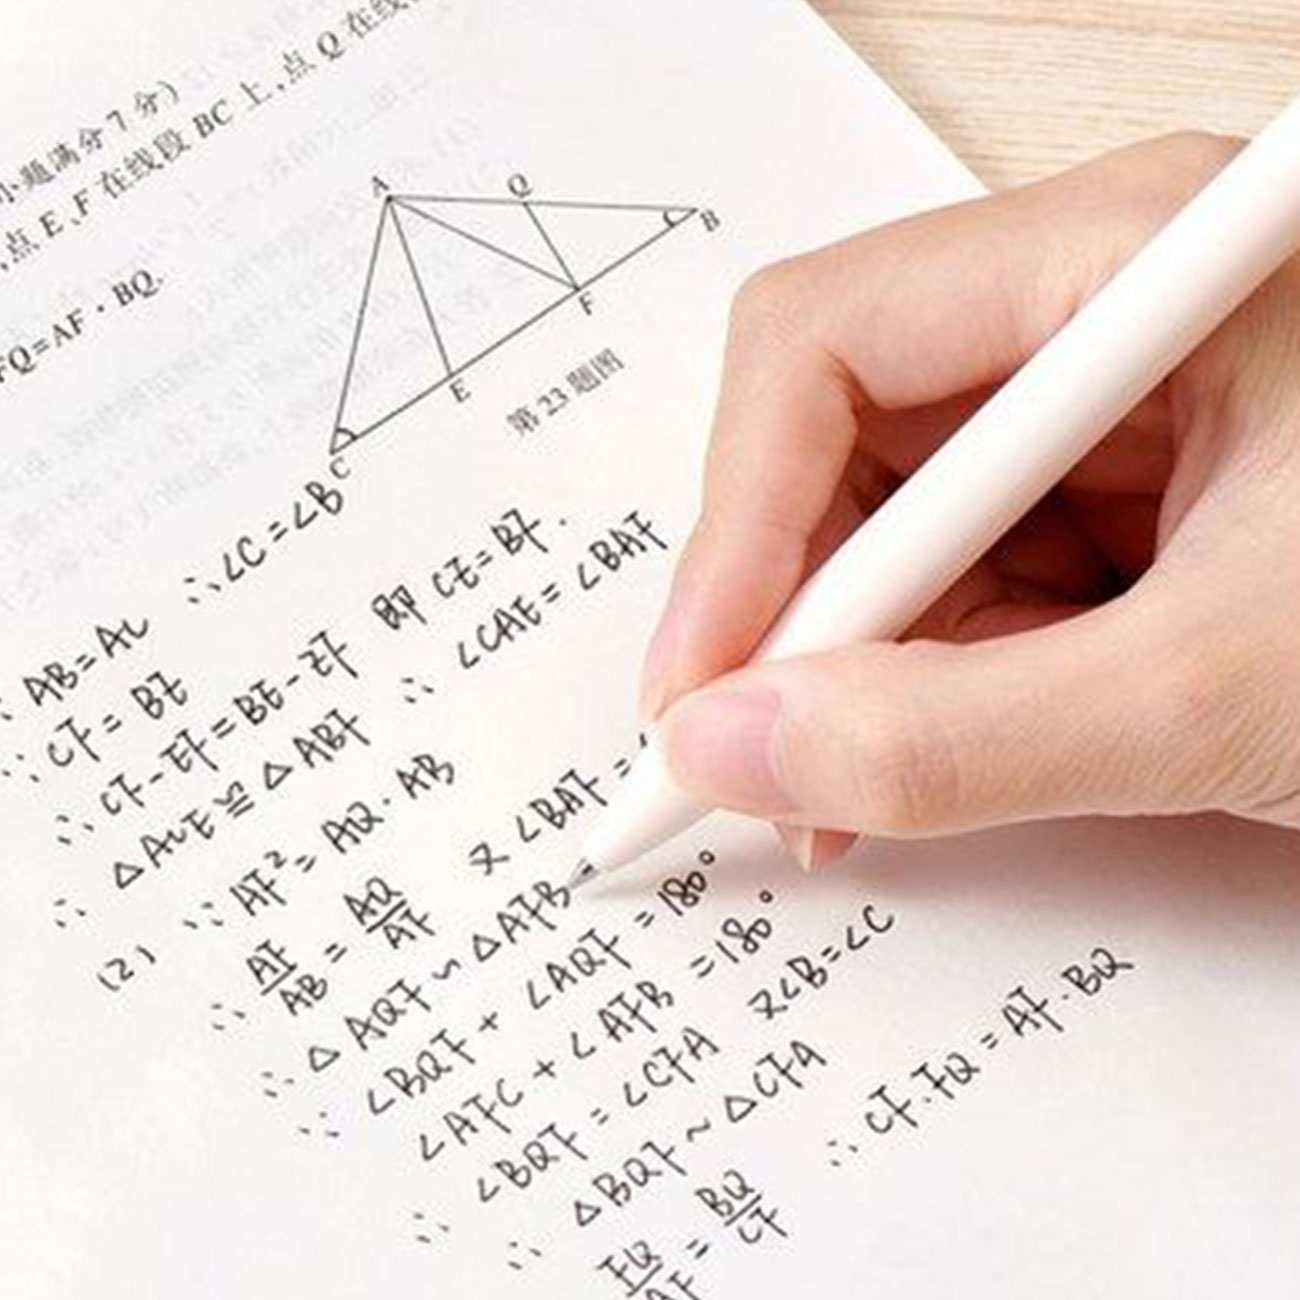 小题满分7分)
,点E、F在线段BC上,点Q在线
FQ=AF·BQ.
A
Q
B
F
E
C
第23题图
∵ AB=AC ∴∠C=∠B
∵ CF=BE
∴ CF-EF=BE-EF 即 CE=BF.
∴ △ACE≌△ABF ∴ ∠CAE=∠BAF
(2) ∵ AF²=AQ·AB
∴ AF/AB=AQ/AF 又∠BAF=
∴ △AQF∽△AFB
∴ ∠BQF+∠AQF=180°
∠AFC+∠AFB=180°
∴ ∠BQF=∠CFA 又∠B=∠C
∴ △BQF~△CFA
FQ/AF=BQ/CF ∴ CF·FQ=AF·BQ